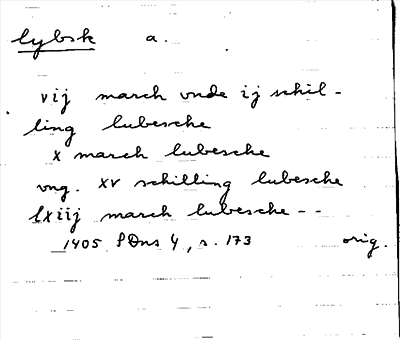 lybsk a.
vij march vnde ij schil-
ling lubesche
x march lubesche
vng. xv schilling lubesche
lxiij march lubesche --
1405 SDns 4, s. 173 orig.